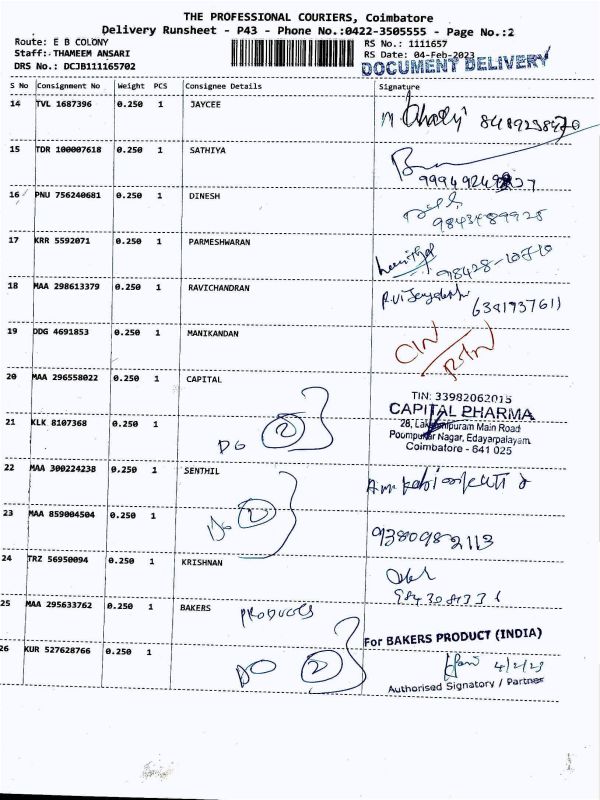 THE PROFESSIONAL COURIERS, Coimbatore
Delivery Runsheet - P43 - Phone No.:0422-3505555 - Page No.:2
Route: E B COLONY RS No.: 1111657
Staff: THAMEEM ANSARI RS Date: 04-Feb-2023
DRS No.: DCJB111165702 DOCUMENT DELIVERY
S No Consignment No Weight PCS Consignee Details Signature
14 TVL 1687396 0.250 1 JAYCEE
15 TDR 100007618 0.250 1 SATHIYA
16 PNU 756240681 0.250 1 DINESH
9843489925
17 KRR 5592071 0.250 1 PARMESHWARAN
98428-10710
18 MAA 298613379 0.250 1 RAVICHANDRAN
6381937611
19 DDG 4691853 0.250 1 MANIKANDAN
CIN
RTN
20 MAA 296558022 0.250 1 CAPITAL
TIN: 33982062015
CAPITAL PHARMA
21 KLK 8107368 0.250 1 28, Lakshmipuram Main Road
DO 2 Poompukar Nagar, Edayarpalayam
Coimbatore - 641 025
22 MAA 300224238 0.250 1 SENTHIL
23 MAA 859004504 0.250 1 Do 2
9380982113
24 TRZ 56950094 0.250 1 KRISHNAN
25 MAA 295633762 0.250 1 BAKERS PRODUCTS
For BAKERS PRODUCT (INDIA)
26 KUR 527628766 0.250 1 DO 2 4/2/23
Authorised Signatory / Partner